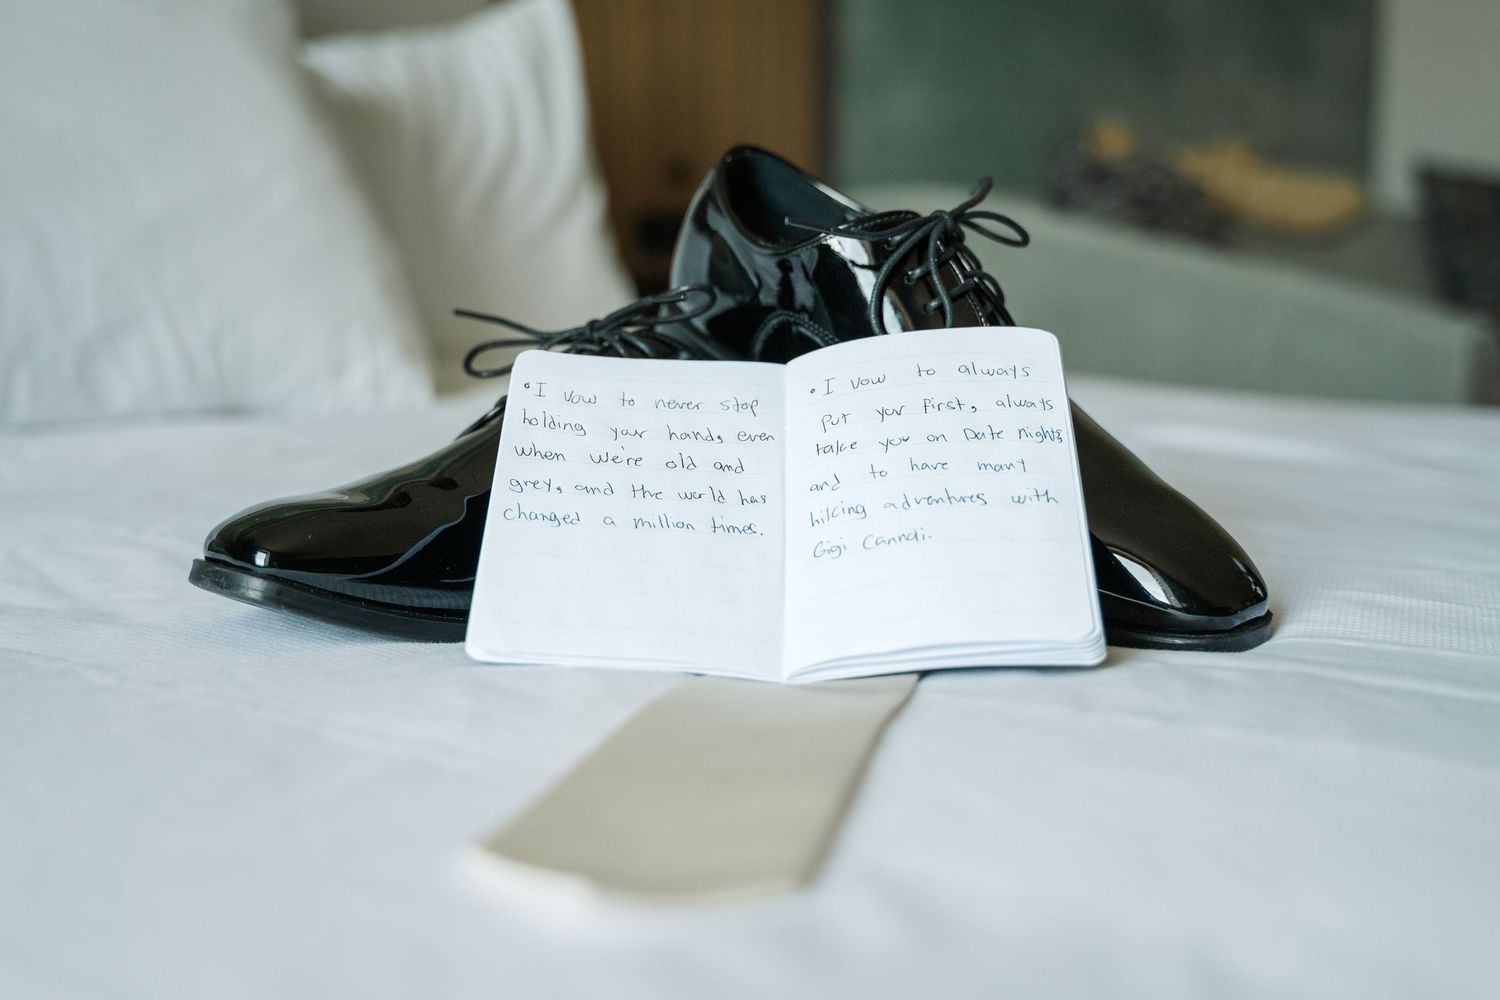 • I vow to never stop
holding your hand, even
when we're old and
grey, and the world has
changed a million times.
• I vow to always
put you first, always
take you on Date nights
and to have many
hiking adventures with
Gigi